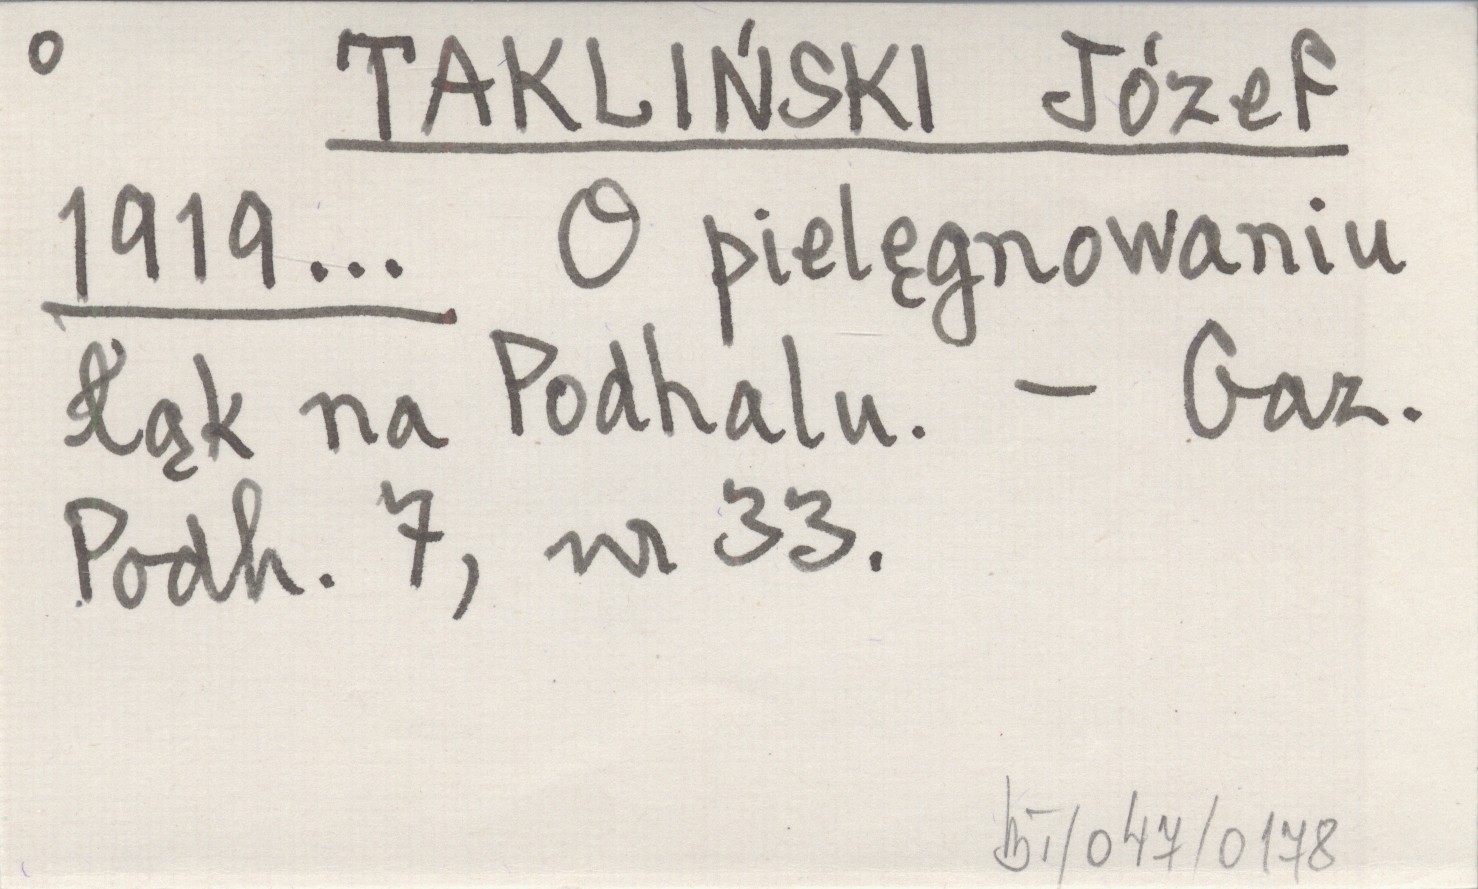 o TAKLIŃSKI Józef
1919... O pielęgnowaniu
łąk na Podhalu. — Gaz.
Podh. 7, nr 33.
/047/0178